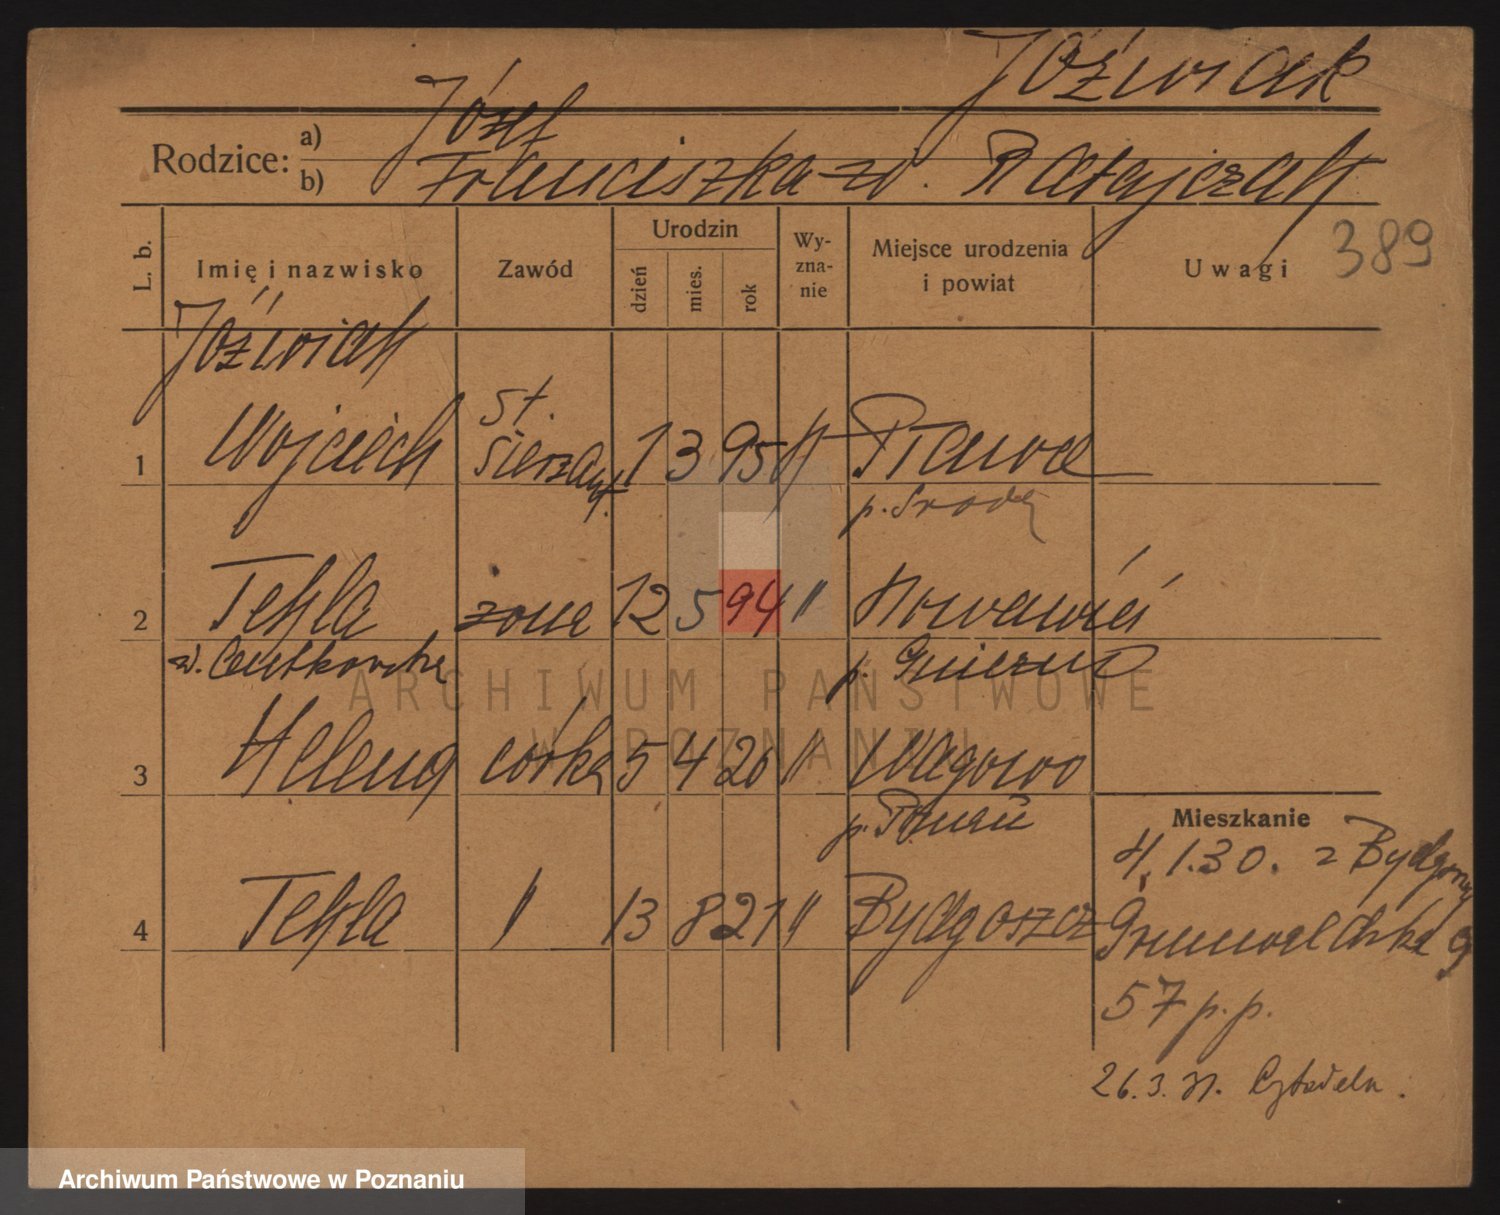 Jóźwiak
Rodzice: a) Józef
b) Franciszka zd. Ratajczak
L. b. Imię i nazwisko Zawód Urodzin dzień mies. rok Wy-zna-nie Miejsce urodzenia i powiat Uwagi 389
Jóźwiak
1 Wojciech St. sierżant. 1 3 95 k Pławce
p. Środa
2 Tekla żona 12 5 94 " Nowawieś
zd. p. Gniezno
3 Helena córka 5 4 20 " Węgowo
p.
4 Tekla " 13 8 21 " Bydgoszcz
Mieszkanie
4.1.30. z Bydgoszczy
Grunwaldzka
57 p.p.
26.3.31. Cytadela.
ARCHIWUM PAŃSTWOWE
W POZNANIU
Archiwum Państwowe w Poznaniu